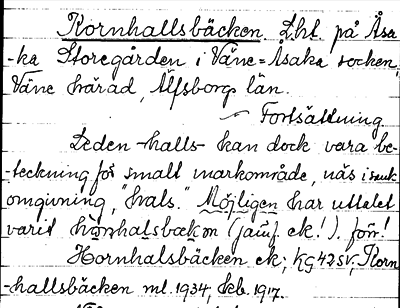 Kornhallsbäcken. Lht på Åsa
-ka Storegården i Väne-Åsaka socken,
Väne härad, Älfsborgs län.
Fortsättning
Leden -halls- kan dock vara be-
-teckning för smalt markområde, näs i sank
omgivning, "hals." Möjligen har uttalet
varit (jämf ek!). förr!
Hornhalsbäcken ek; kg 42 SV, Korn
-hallsbäcken ml. 1934, Geb. 1917.